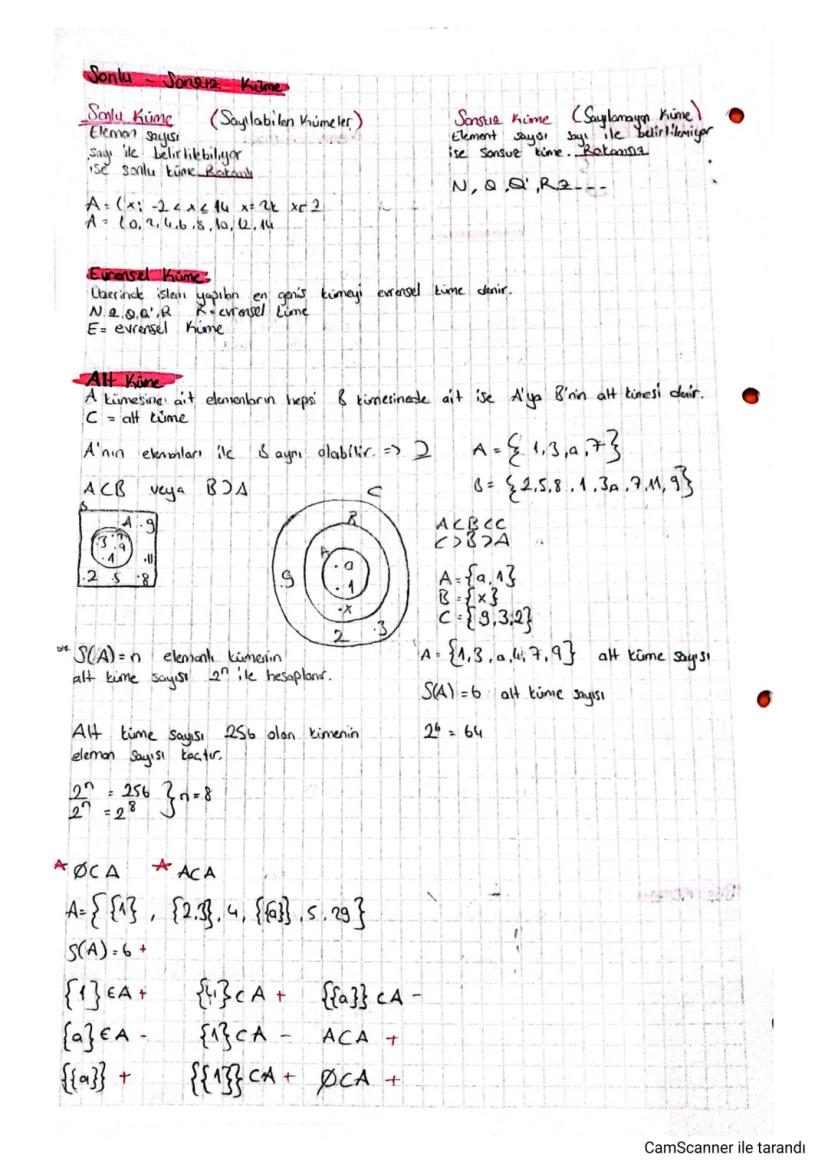 Sonlu - Sonsuz Küme
Sonlu Küme (Sayılabilen Kümeler)
Eleman sayısı
sayı ile belirlikbiliyor
ise sonlu küme
Sonsuz Küme (Sayılamayan Küme)
Element sayısı sayı ile belirlilemiyor
ise sonsuz küme.
N, Q, Q', R 2 ---
A = (x; -2 < x ≤ 14 x = 2k x ∈ 2
A = {0, 2, 4, 6, 8, 10, 12, 14
Evrensel Küme
Üzerinde işlem yapılan en geniş kümeyi evrensel küme denir.
N, 2, Q, Q', R R = evrensel küme
E = evrensel küme
Alt Küme
A kümesine ait elemanların hepsi B kümesinede ait ise A'ya B'nin alt kümesi denir.
C = alt küme
A'nın elemanları ile B aynı olabilir. =>
A = {1, 3, a, 7}
A ⊂ B veya B ⊃ A
B = {2, 5, 8, 1, 3a, 7, 11, 9}
A .9
.1 .11
.2 5 .8
C
B
A
.a
.1
.x
.9
2 .3
A ⊂ B ⊂ C
C ⊃ B ⊃ A
A = {a, 1}
B = {x}
C = {9, 3, 2}
S(A) = n elemanlı kümenin
alt küme sayısı 2ⁿ ile hesaplanır.
A = {1, 3, a, 4, 7, 9} alt küme sayısı
S(A) = 6 alt küme sayısı
2⁶ = 64
Alt küme sayısı 256 olan kümenin
eleman sayısı kaçtır.
2ⁿ = 256 } n = 8
2ⁿ = 2⁸
Ø ⊂ A A ⊂ A
A = { {1}, {2,3}, 4, {{a}}, 5, 29 }
S(A) = 6 +
{1} ∈ A + {4} ⊂ A + {{a}} ⊂ A -
{a} ∈ A - {1} ⊂ A - A ⊂ A +
{{a}} + {{1}} ⊂ A + Ø ⊂ A +
CamScanner ile tarandı